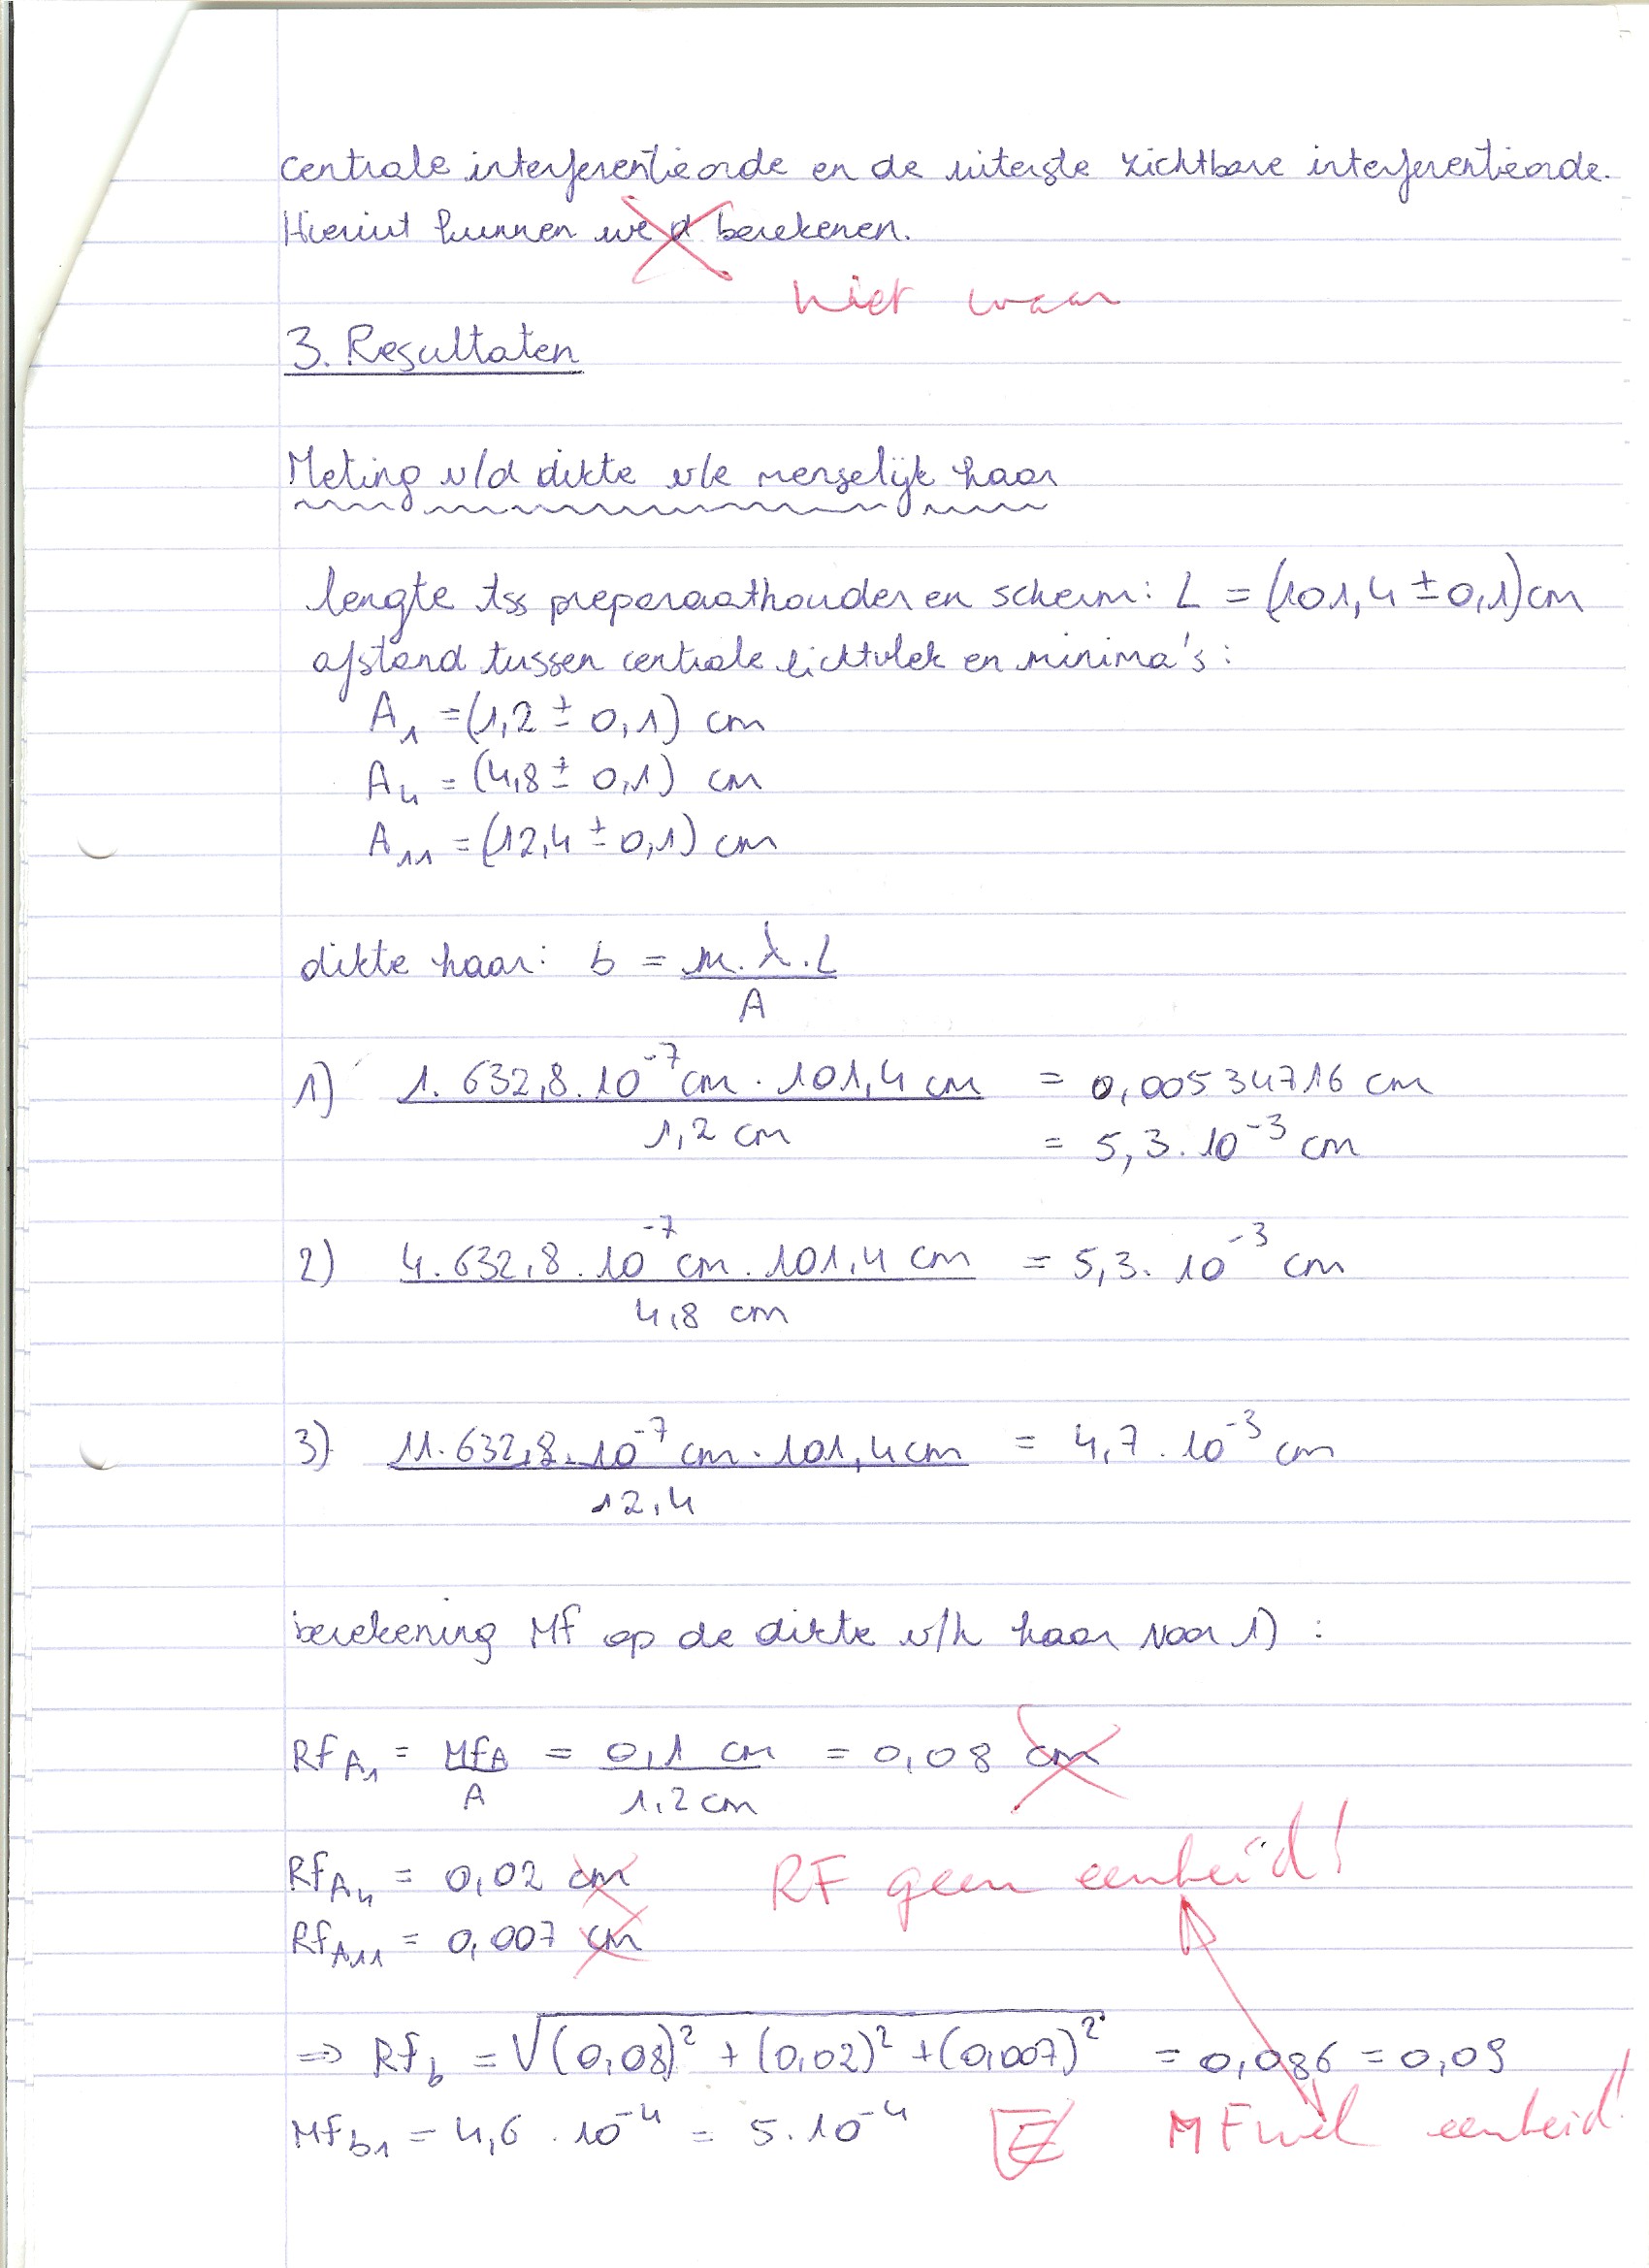 centrale interferentieorde en de uiterste zichtbare interferentieorde.
Hieruit kunnen we d berekenen.
niet waar
3. Resultaten
Meting v/d dikte v/e menselijk haar
lengte tss preparaathouder en scherm: L = (101,4 ± 0,1) cm
afstand tussen centrale lichtvlek en minima's:
A₁ = (1,2 ± 0,1) cm
A₄ = (4,8 ± 0,1) cm
A₁₁ = (12,4 ± 0,1) cm
dikte haar: b = m.λ.L
A
1) 1. 632,8. 10⁻⁷ cm . 101,4 cm = 0,00534716 cm
1,2 cm = 5,3. 10⁻³ cm
2) 4. 632,8. 10⁻⁷ cm . 101,4 cm = 5,3. 10⁻³ cm
4,8 cm
3) 11. 632,8. 10⁻⁷ cm . 101,4 cm = 4,7 . 10⁻³ cm
12,4
berekening Mf op de dikte v/h haar voor 1) :
Rf A₁ = MfA = 0,1 cm = 0,08 cm
A 1,2 cm
Rf A₄ = 0,02 cm RF geen eenheid!
Rf A₁₁ = 0,007 cm
⇒ Rf b = √(0,08)² + (0,02)² + (0,007)² = 0,086 = 0,09
Mf b1 = 4,6 . 10⁻⁴ = 5. 10⁻⁴ E MF wel eenheid!